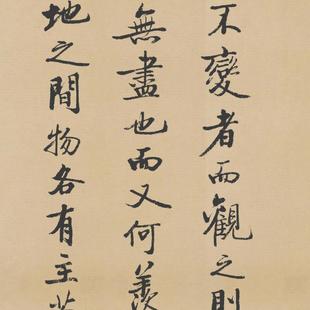 不變者而觀之則
無盡也而又何羨
地之間物各有主